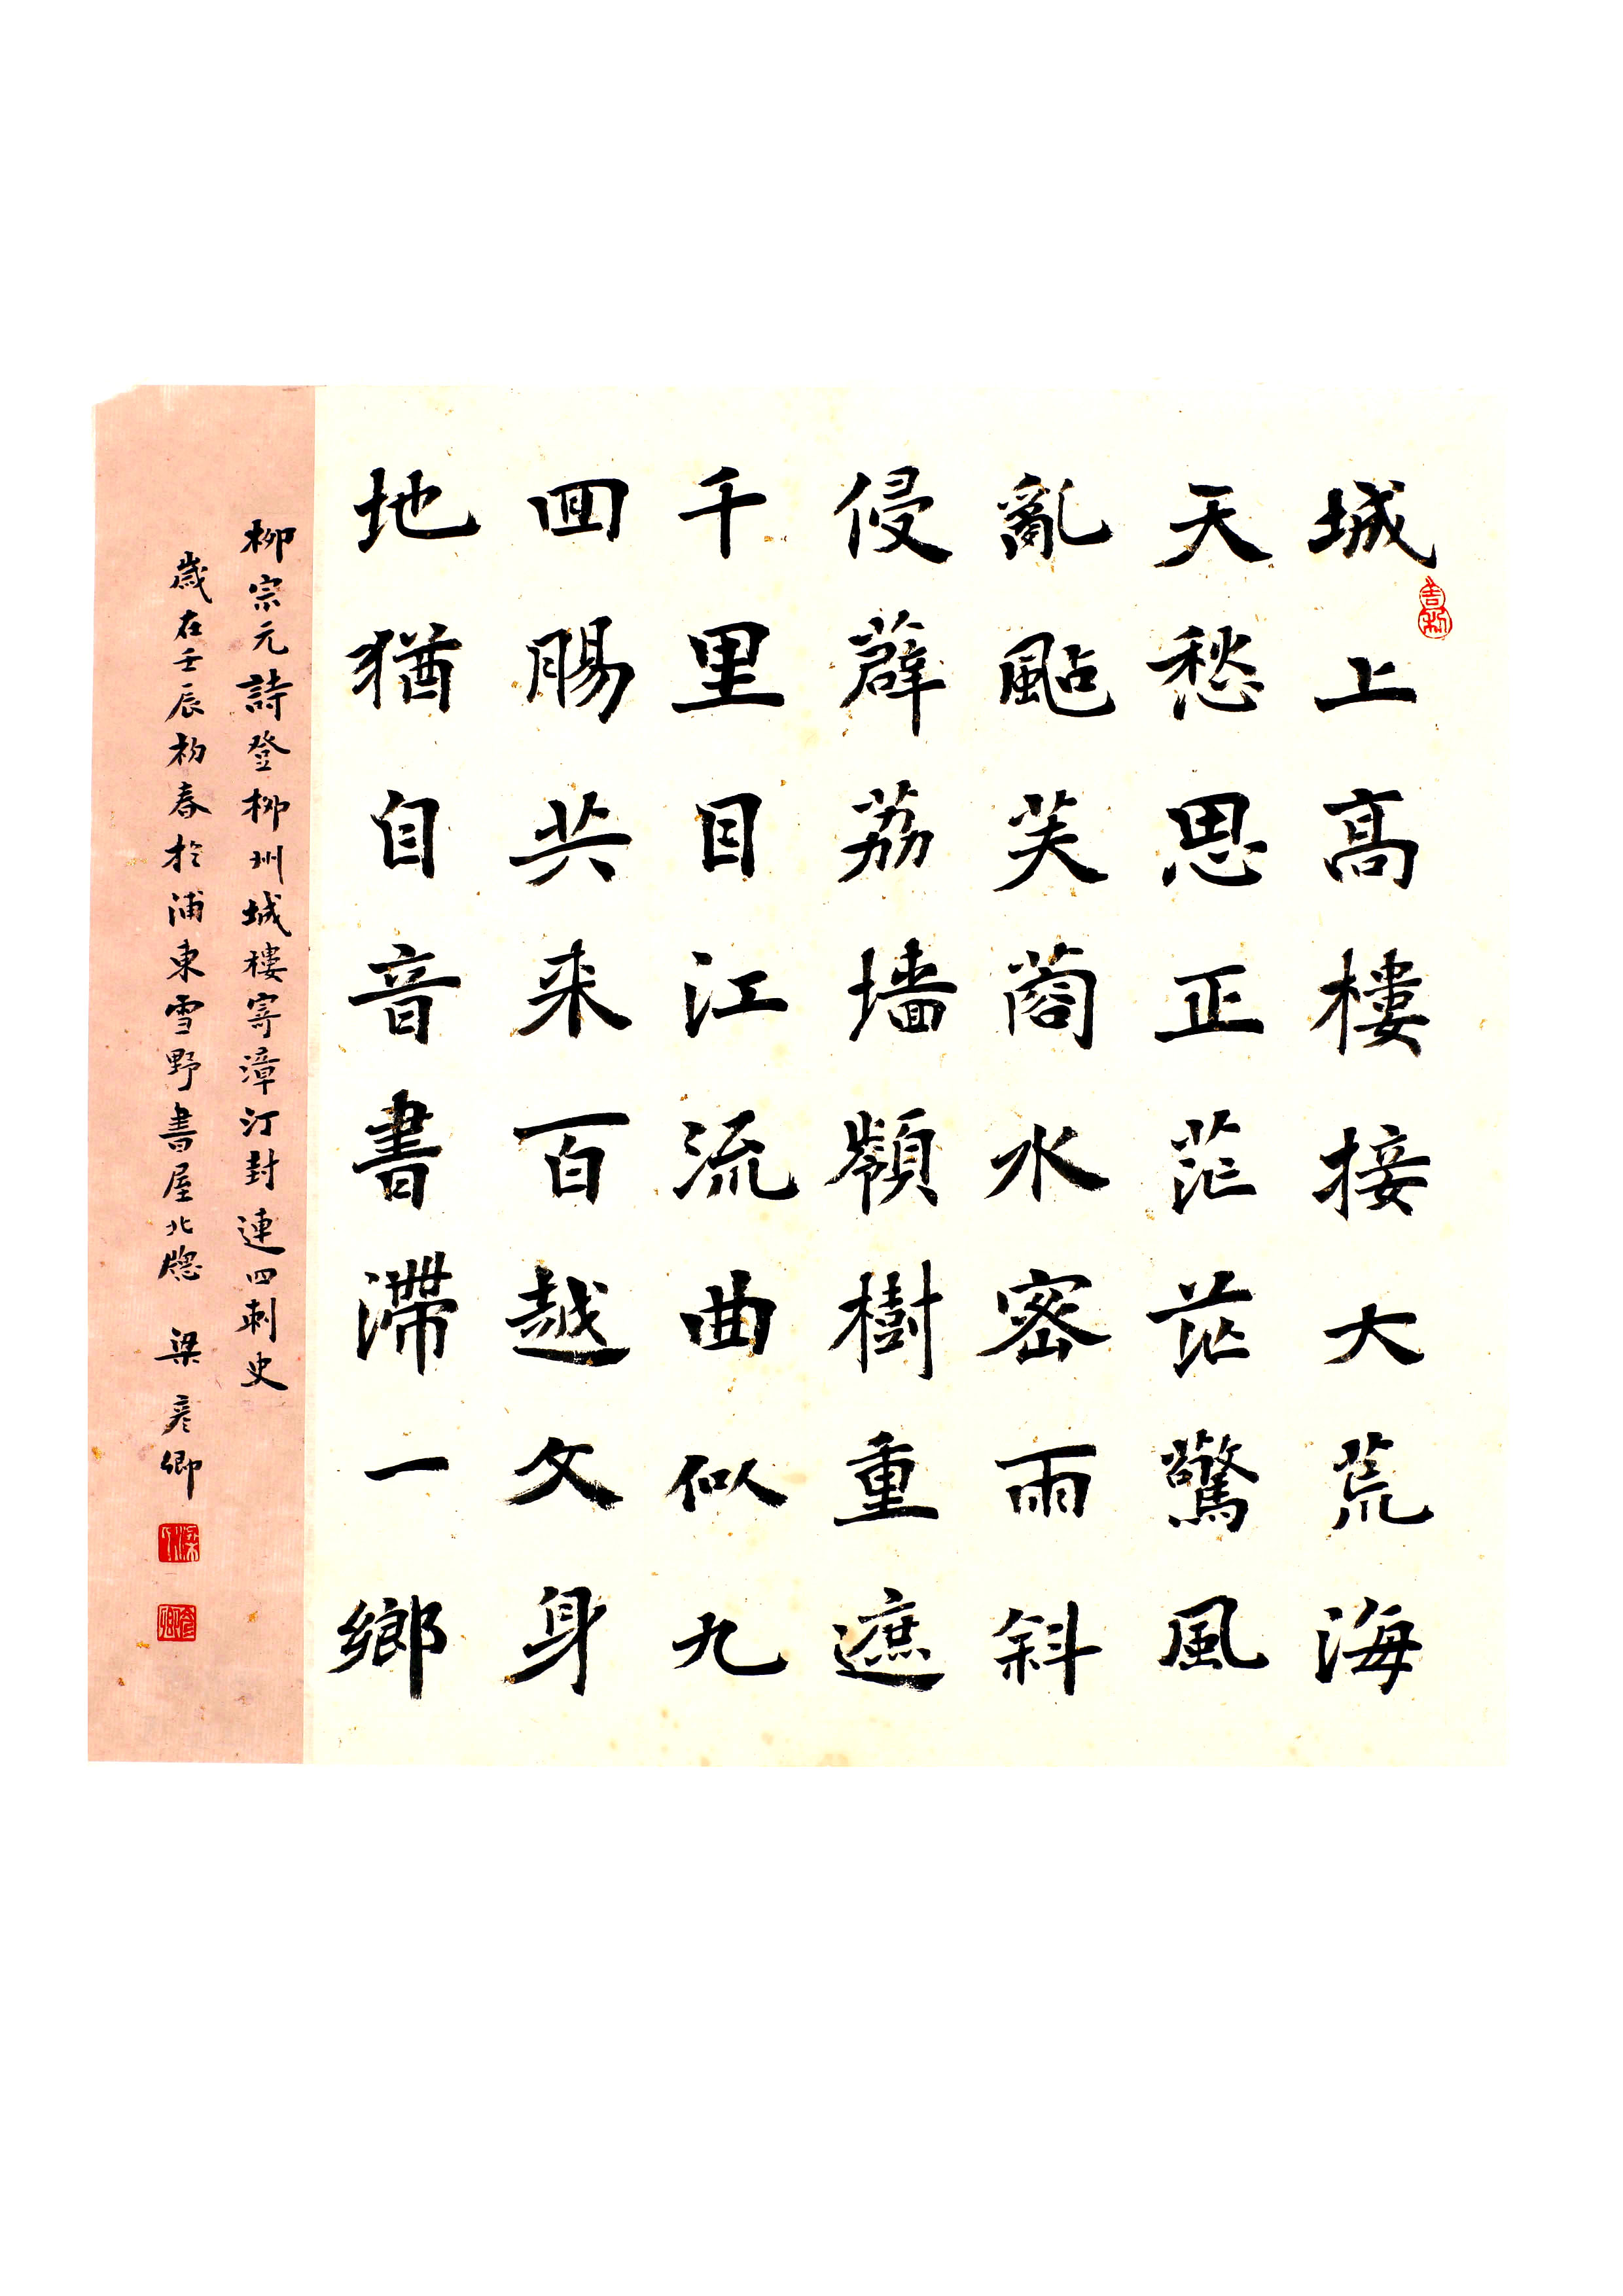 城上高樓接大荒海
天愁思正茫茫驚風
亂颭芙蓉水密雨斜
侵薜荔墻嶺樹重遮
千里目江流曲似九
回腸共来百越文身
地猶自音書滯一鄉
柳宗元詩登柳州城樓寄漳汀封連四刺史
歲在壬辰初春於浦東雪野書屋北牕 梁彦卿
吉利
梁
彦卿